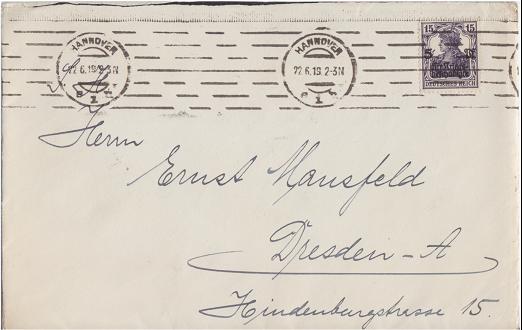 HANNOVER
22.6.19.2-3N
* 1 *
HANNOVER
22.6.19.2-3N
1
15 15
5 5
DEUTSCHES REICH
Herrn
Ernst Mansfeld
Dresden - A
Hindenburgstrasse 15.